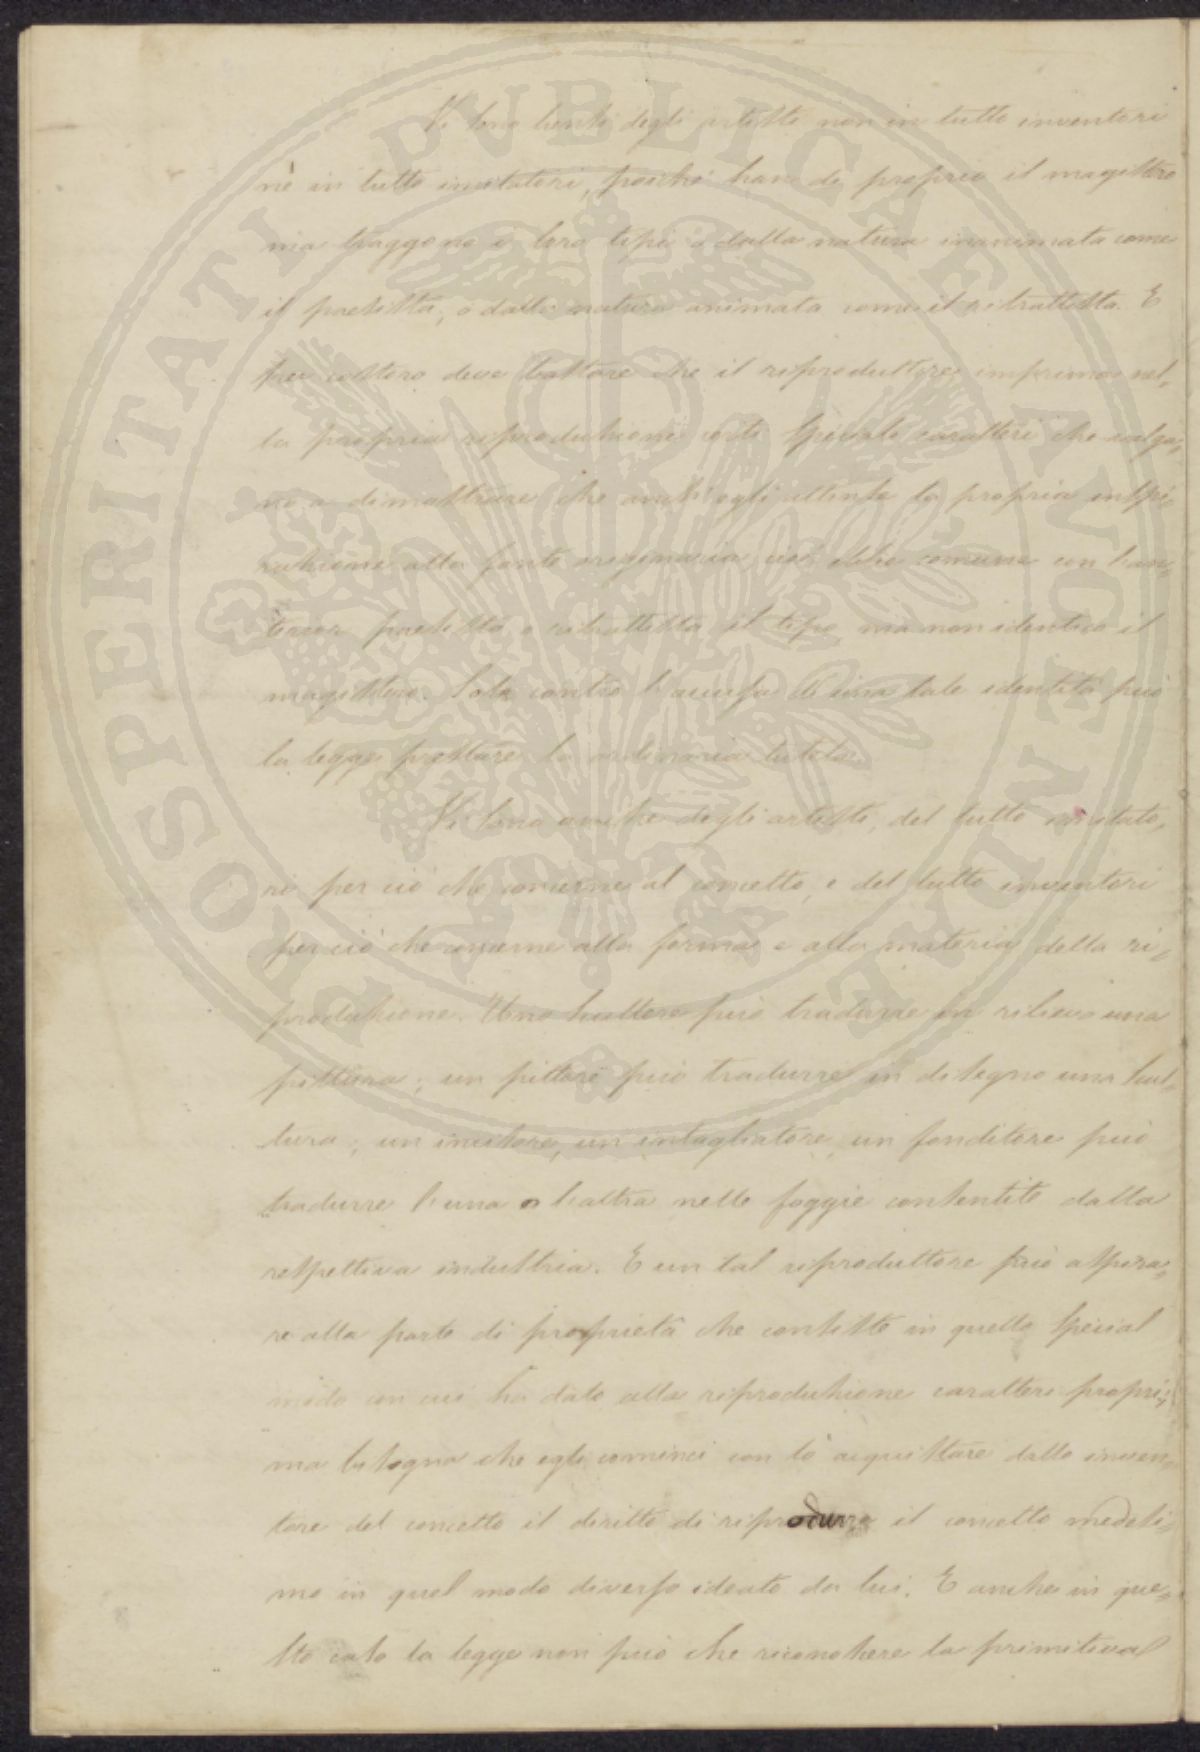 Vi sono bensì degli artisti non in tutto inventori
nè in tutto imitatori, poichè han di proprio il magistero
ma traggono i loro tipi o dalla natura inanimata come
il paesista, o dalla natura animata come il ritrattista. E
per costoro deve bastare che il riproduttore imprima nel-
la propria riproduzione certi speciali caratteri che valga-
no a dimostrare che anch'egli attinse la propria inspi-
razione alla fonte originaria cioè ebbe comune con l'an-
terior paesista o ritrattista il tipo, ma non identico il
magistero. Solo contro l'accusa di una tale identità può
la legge prestare la ordinaria tutela.
Vi sono anche degli artisti, del tutto imitato-
ri per ciò che concerne al concetto, e del tutto inventori
per ciò che concerne alla forma e alla materia della ri-
produzione. Uno scultore può tradurre in rilievo una
pittura; un pittore può tradurre in disegno una scul-
tura; un incisore, un intagliatore, un fonditore può
tradurre l'una o l'altra nelle foggie consentite dalla
respettiva industria. E un tal riproduttore può aspira-
re alla parte di proprietà che consiste in quello special
modo con cui ha dato alla riproduzione carattere proprio,
ma bisogna che egli cominci con lo acquistare dallo inven-
tore del concetto il diritto di riprodurre il concetto medesi-
mo in quel modo diverso ideato da lui. E anche in que-
sto caso la legge non può che riconoscere la primitiva
PROSPERITATI PVBLICAE AVGENDAE